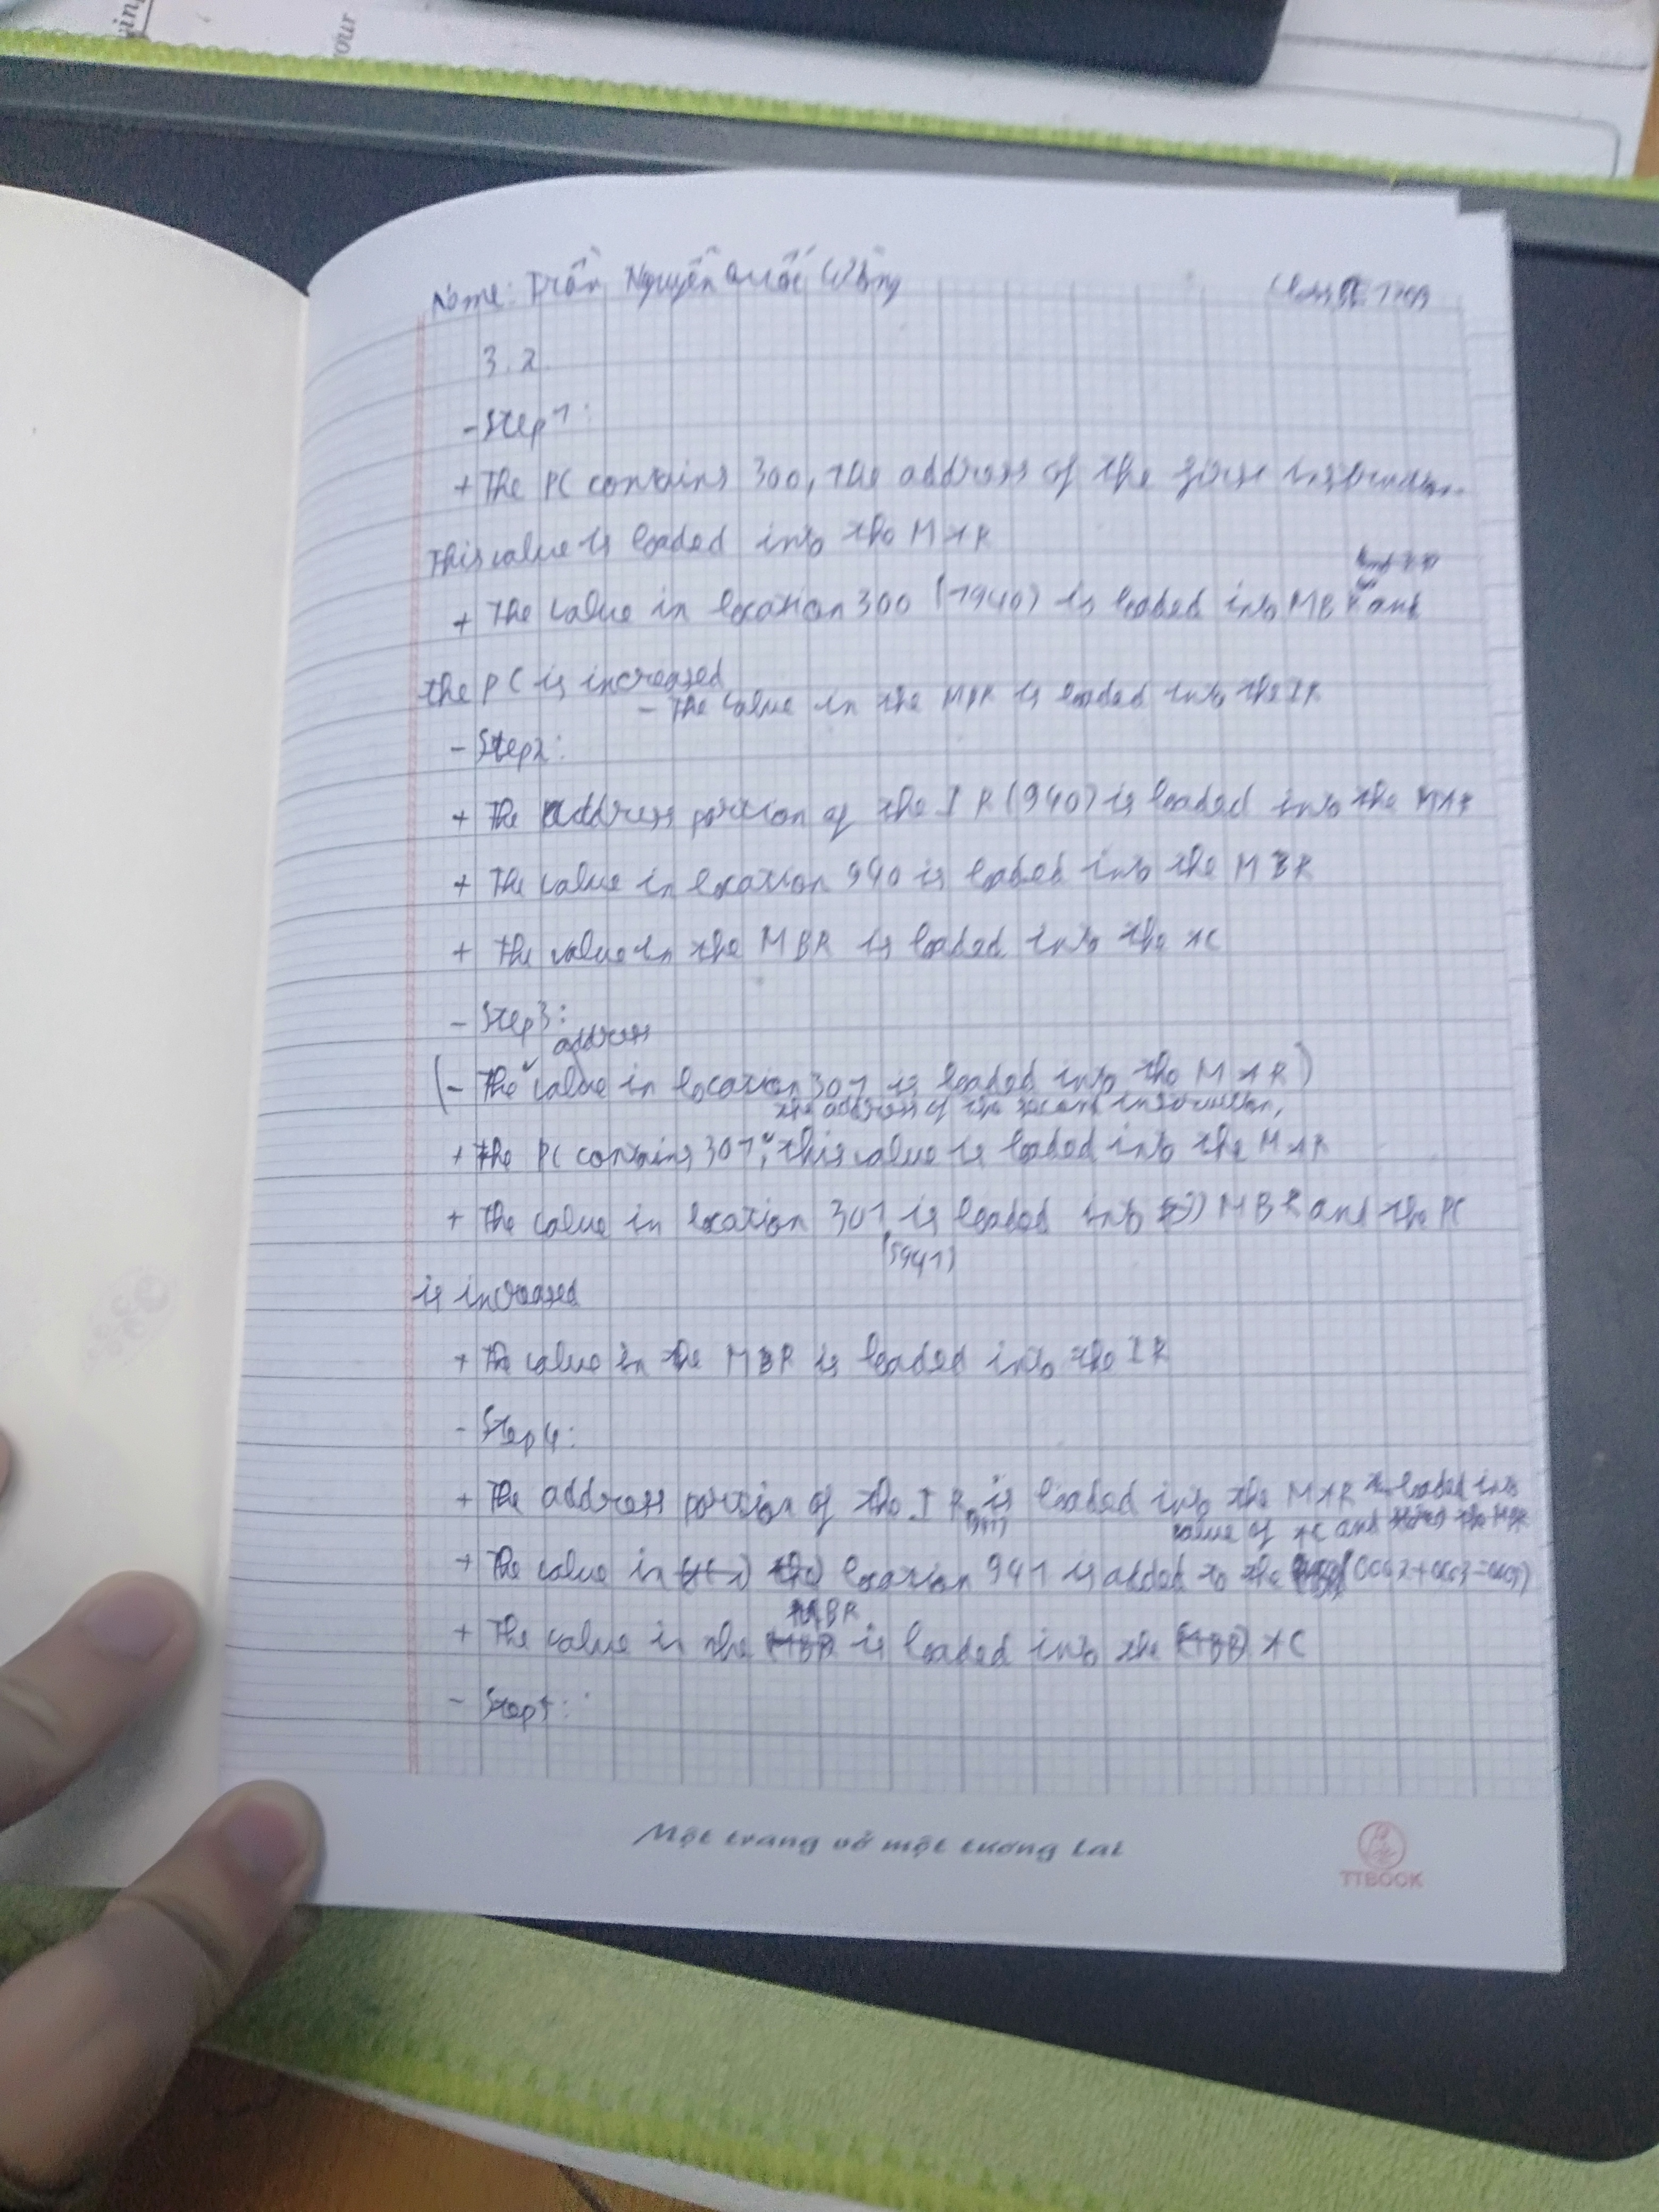 ving
our
Name: Trần Nguyễn Quốc
Class
3.2
- Step 1:
+ The PC contains 300, the address of the first instruction.
This value is loaded into the MAR
+ The value in location 300 (1940) is loaded into MBR and
the PC is increased
- The value in the MBR is loaded into the IR
- Step2:
+ The address portion of the IR (940) is loaded into the MAR
+ The value in location 940 is loaded into the MBR
+ The value in the MBR is loaded into the AC
- Step3:
address
(- The value in location 301 is loaded into the MAR)
the address of the second instruction,
+ the PC contains 301, this value is loaded into the MAR
+ The value in location 301 is loaded into MBR and the PC
(5941)
is increased
+ The value in the MBR is loaded into the IR
- Step 4:
+ The address portion of the IR is loaded into the MAR loaded into
(941)
value of AC and
+ The value in location 941 is added to the
MBR
+ The value in the is loaded into the AC
- Step5:
Một trang vở một tương lai
TTBOOK